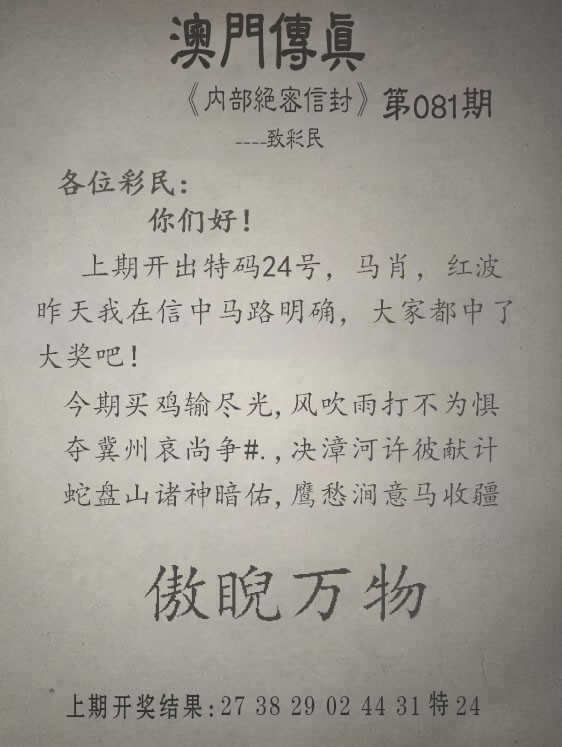 澳門傳眞
《内部絕密信封》第081期
----致彩民
各位彩民：
你们好！
上期开出特码24号，马肖，红波
昨天我在信中马路明确，大家都中了
大奖吧！
今期买鸡输尽光,风吹雨打不为惧
夺冀州哀尚争#.,决漳河许彼献计
蛇盘山诸神暗佑,鹰愁涧意马收疆
傲睨万物
上期开奖结果:27 38 29 02 44 31 特24